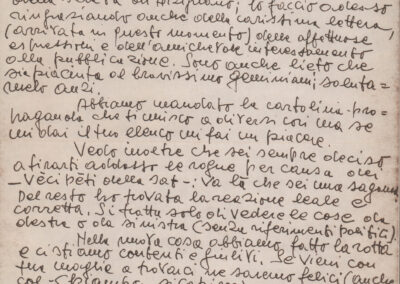 della scelta ad Artigiano; lo faccio adesso
ringraziando anche della carissima lettera,
(arrivata in questo momento) delle affettuose
espressioni e dell'amichevole interessamento
alla pubblicazione. Sono anche lieto che
sia piaciuta al bravissimo Geminiani; saluta=
melo anzi.
Abbiamo mandato la cartolina-pro=
paganda che ti unisco a diversi con ma se
mi dai il tuo elenco mi fai un piacere.
Vedo inoltre che sei sempre deciso
a tirarti addosso le rogne per causa dei
- Vèci pèti della sat -: Va là che sei una sagoma
Del resto ho trovata la reazione leale e
corretta. Si tratta solo di vedere le cose da
destra o da sinistra (senza riferimenti politici).
Nella nuova casa abbiamo fatto la rotta
e ci stiamo contenti e giulivi. Se vieni con
tua moglie a trovarci ne saremo felici (anche
col